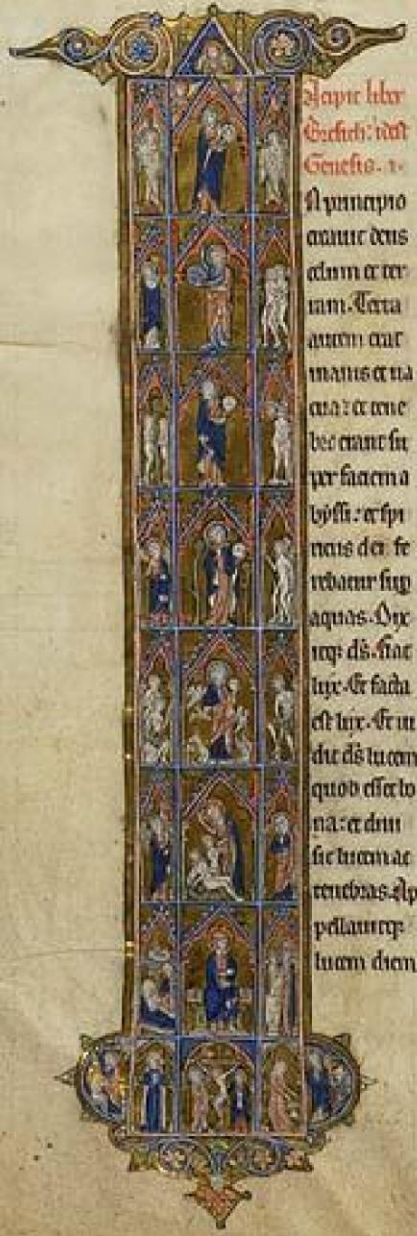 Incipit liber
Bresich: idest
Genesis. i.
N principio
creauit deus
celum et ter
ram. Terra
autem erat
inanis et ua
cua: et tene
bre erant su
per faciem a
byssi: et spi
ritus dei fe
rebatur sup
aquas. Dix
itqz ds. fiat
lux. Et facta
est lux. Et ui
dit ds lucem
quod esset bo
na: et diui
sit lucem ac
tenebras. Ap
pellauitqz
lucem diem